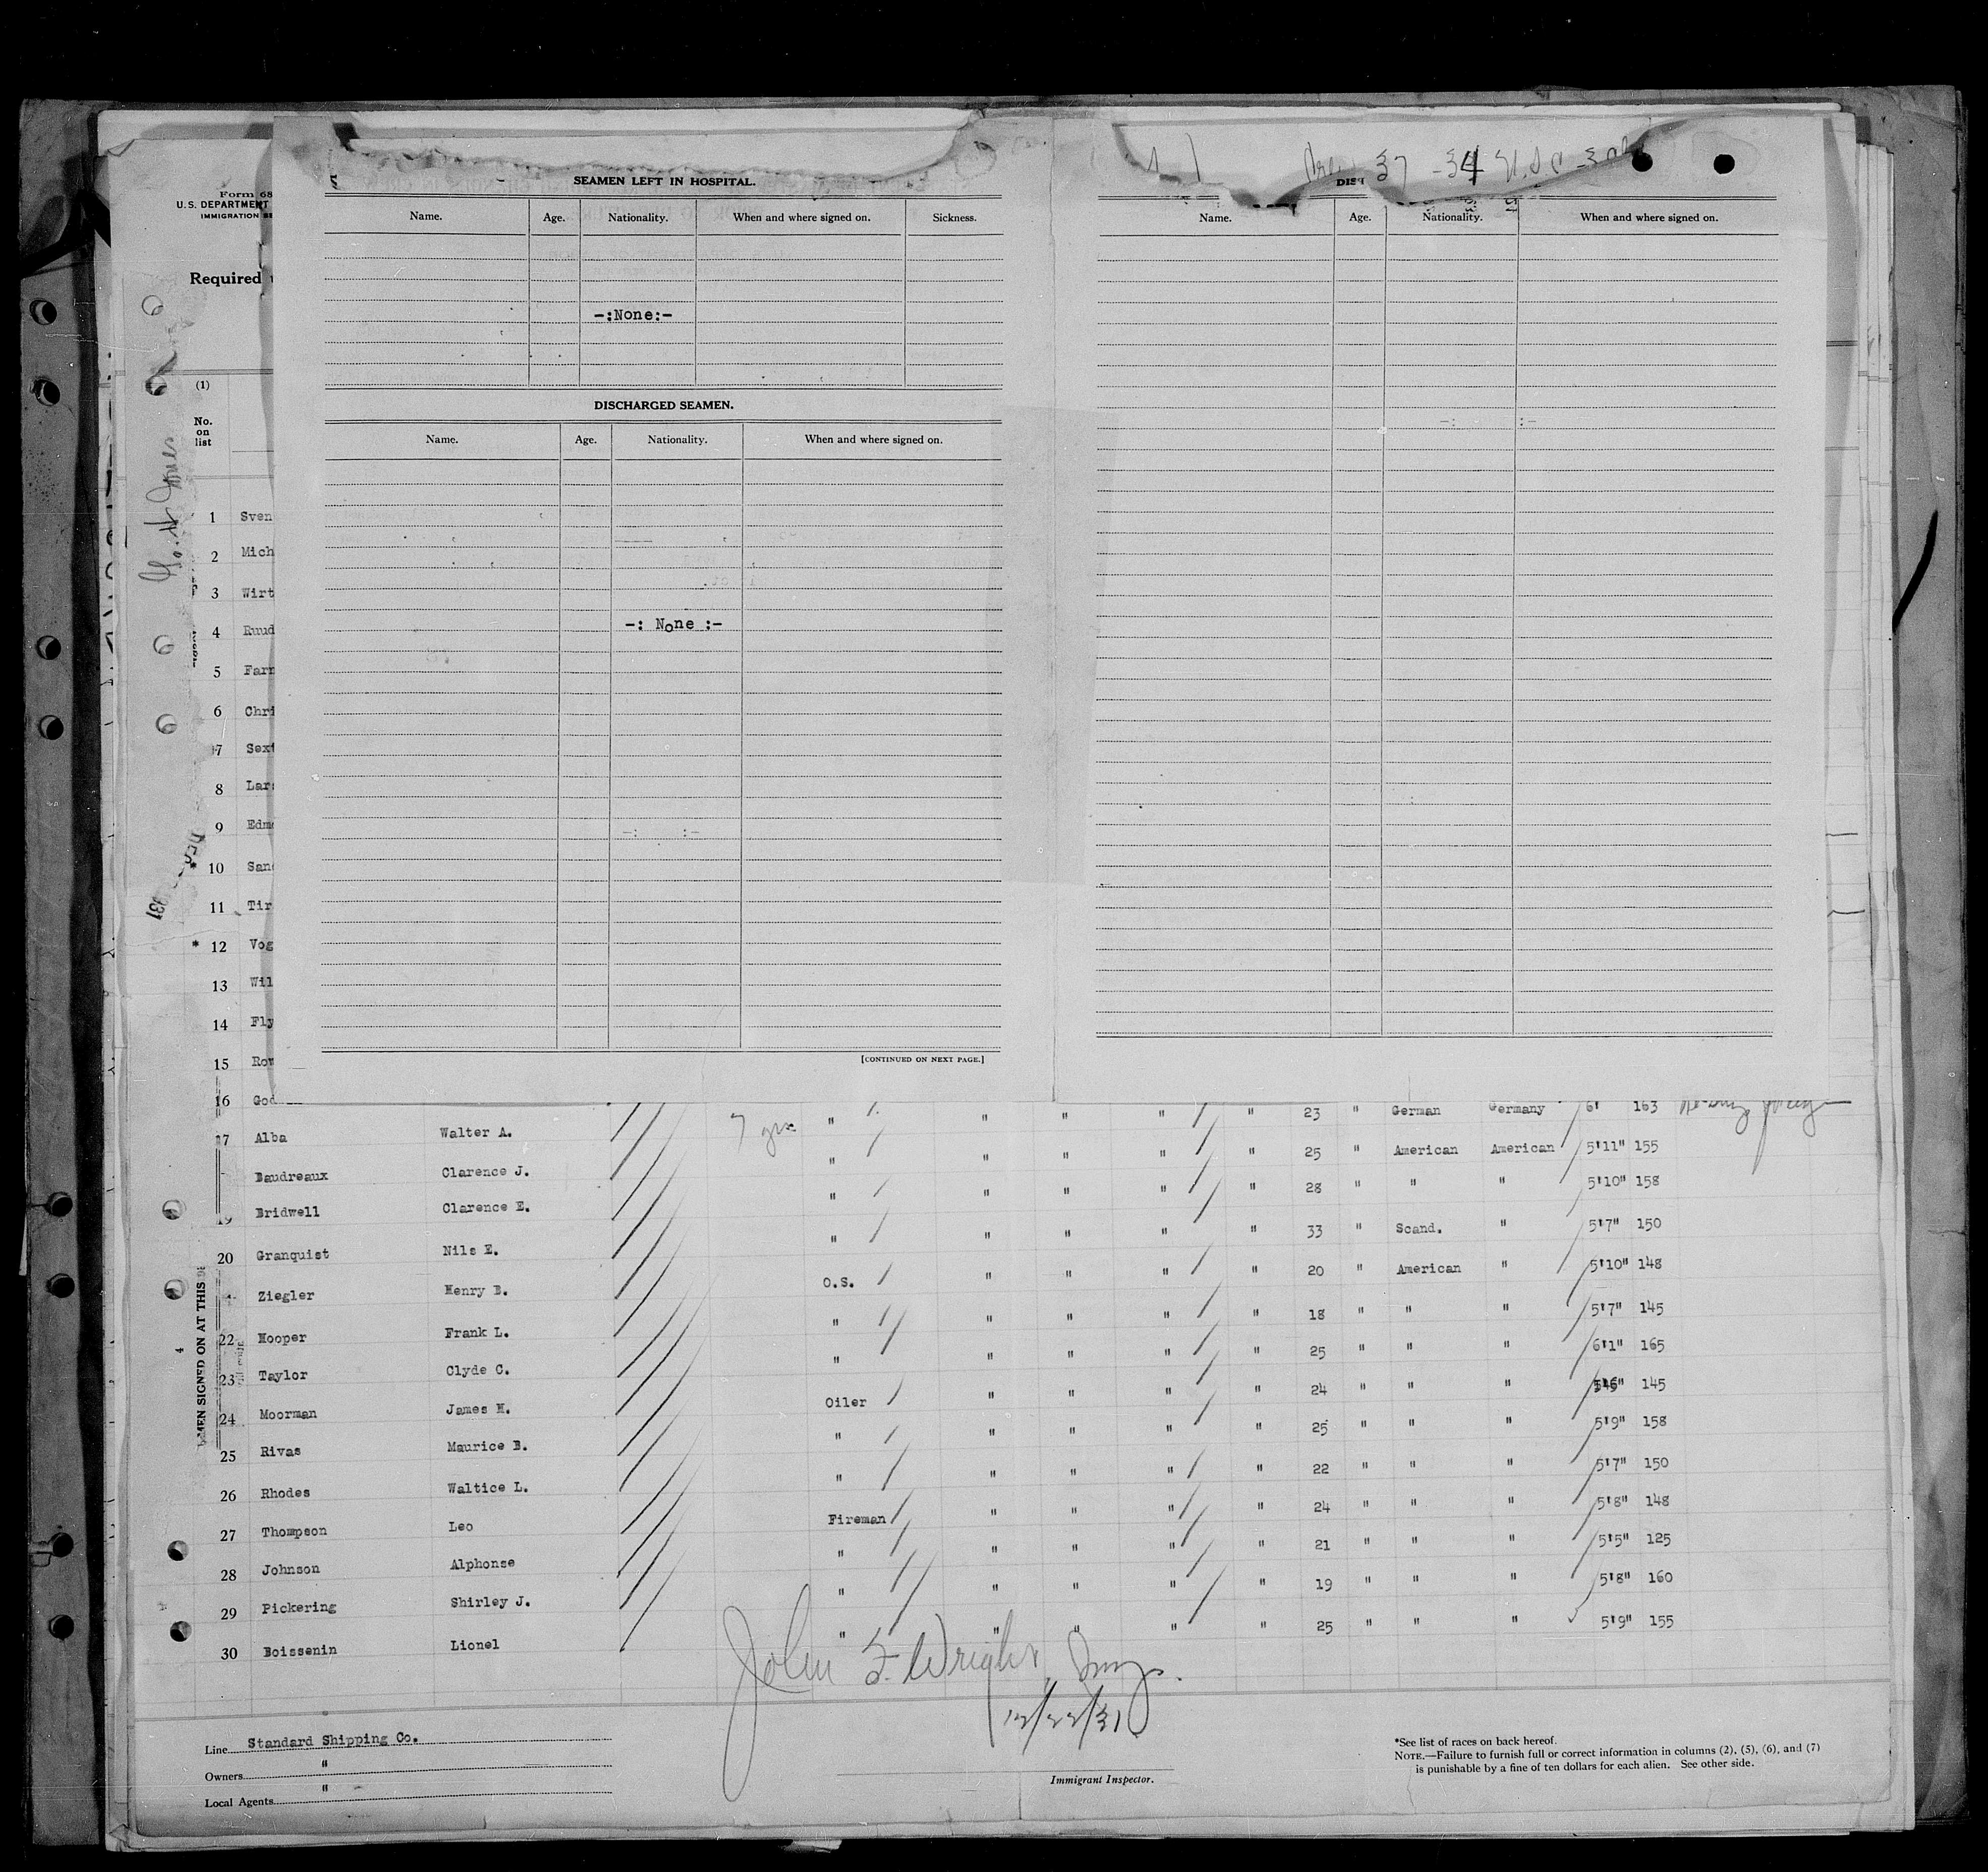 SEAMEN LEFT IN HOSPITAL.
Name. Age. Nationality. When and where signed on. Sickness.
-:None:-
DISCHARGED SEAMEN.
Name. Age. Nationality. When and where signed on.
-: None :-
[CONTINUED ON NEXT PAGE.]
37 - 34 U.S.C
DIS
Name. Age. Nationality. When and where signed on.
Form 68
U.S. DEPARTMENT
IMMIGRATION SE
Required
(1)
No.
on
list
1 Sven
2 Mich
3 Wirt
4 Ruud
5 Farn
6 Chri
7 Sext
8 Lars
9 Edmo
* 10 Sand
11 Tir
* 12 Vog
13 Wil
14 Fly
15 Row
16 God
" " " " " 23 " German Germany 6' 163
17 Alba Walter A. 7 yrs " " " " " 25 " American American 5'11" 155
Baudreaux Clarence J. " " " " " 28 " " " 5'10" 158
19 Bridwell Clarence E. " " " " " 33 " Scand. " 5'7" 150
20 Granquist Nils E. " " " " " 20 " American " 5'10" 148
Ziegler Henry B. O.S. " " " " 18 " " " 5'7" 145
22 Hooper Frank L. " " " " " 25 " " " 6'1" 165
23 Taylor Clyde C. " " " " " 24 " " " 145
24 Moorman James M. Oiler " " " " 25 " " " 5'9" 158
25 Rivas Maurice B. " " " " " 22 " " " 5'7" 150
26 Rhodes Waltice L. " " " " " 24 " " " 5'8" 148
27 Thompson Leo Fireman " " " " 21 " " " 5'5" 125
28 Johnson Alphonse " " " " " 19 " " " 5'8" 160
29 Pickering Shirley J. " " " " " 25 " " " 5'9" 155
30 Boissenin Lionel " " " "
SIGNED ON AT THIS
4
John F. Wright
12/22/31
Immigrant Inspector.
Line Standard Shipping Co.
Owners "
Local Agents "
*See list of races on back hereof.
NOTE.—Failure to furnish full or correct information in columns (2), (5), (6), and (7)
is punishable by a fine of ten dollars for each alien. See other side.